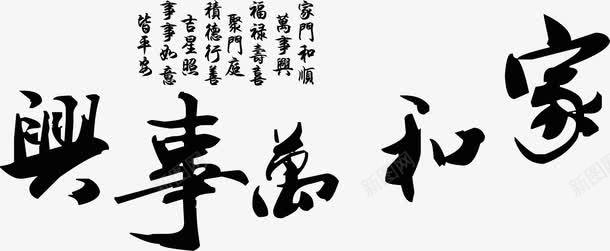 家和萬事興
家門和順
萬事興
福禄壽喜
聚門庭
積德行善
吉星照
事事如意
皆平安